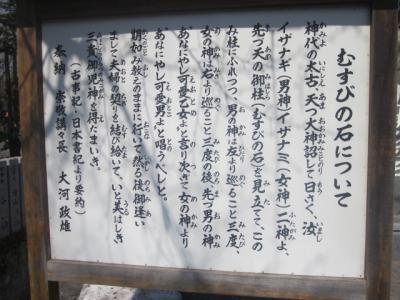 むすびの石について
神代の太古、天つ大神詔して曰さく、汝
イザナギ（男神）イザナミ（女神）二神よ、
先づ天の御柱（むすびの石）を見立て、この
み柱にふれつつ、男の神は左より巡ること三度、
女の神は右より巡ること三度の後、先づ男の神
あなにやし可愛乙女よと言り次ぎて女の神より
あなにやし可愛男よと唱うべしと。
期如み教えのままに行いて、然る後御遘い
まして夫婦の契りを結び給いて、いと美はしき
三貴御児神を得たまいき。
（古事記・日本書紀より要約）
奉納 崇敬講々長 大河政雄